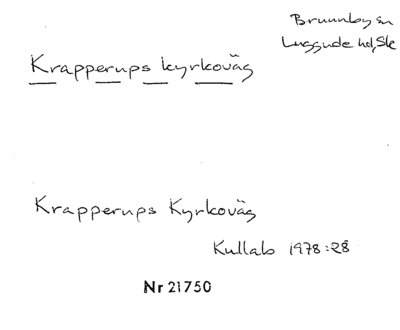 Brunnby sn
Luggude hd, Sk
Krapperups kyrkoväg
Krapperups Kyrkoväg
Kullab 1978:28
Nr 21750